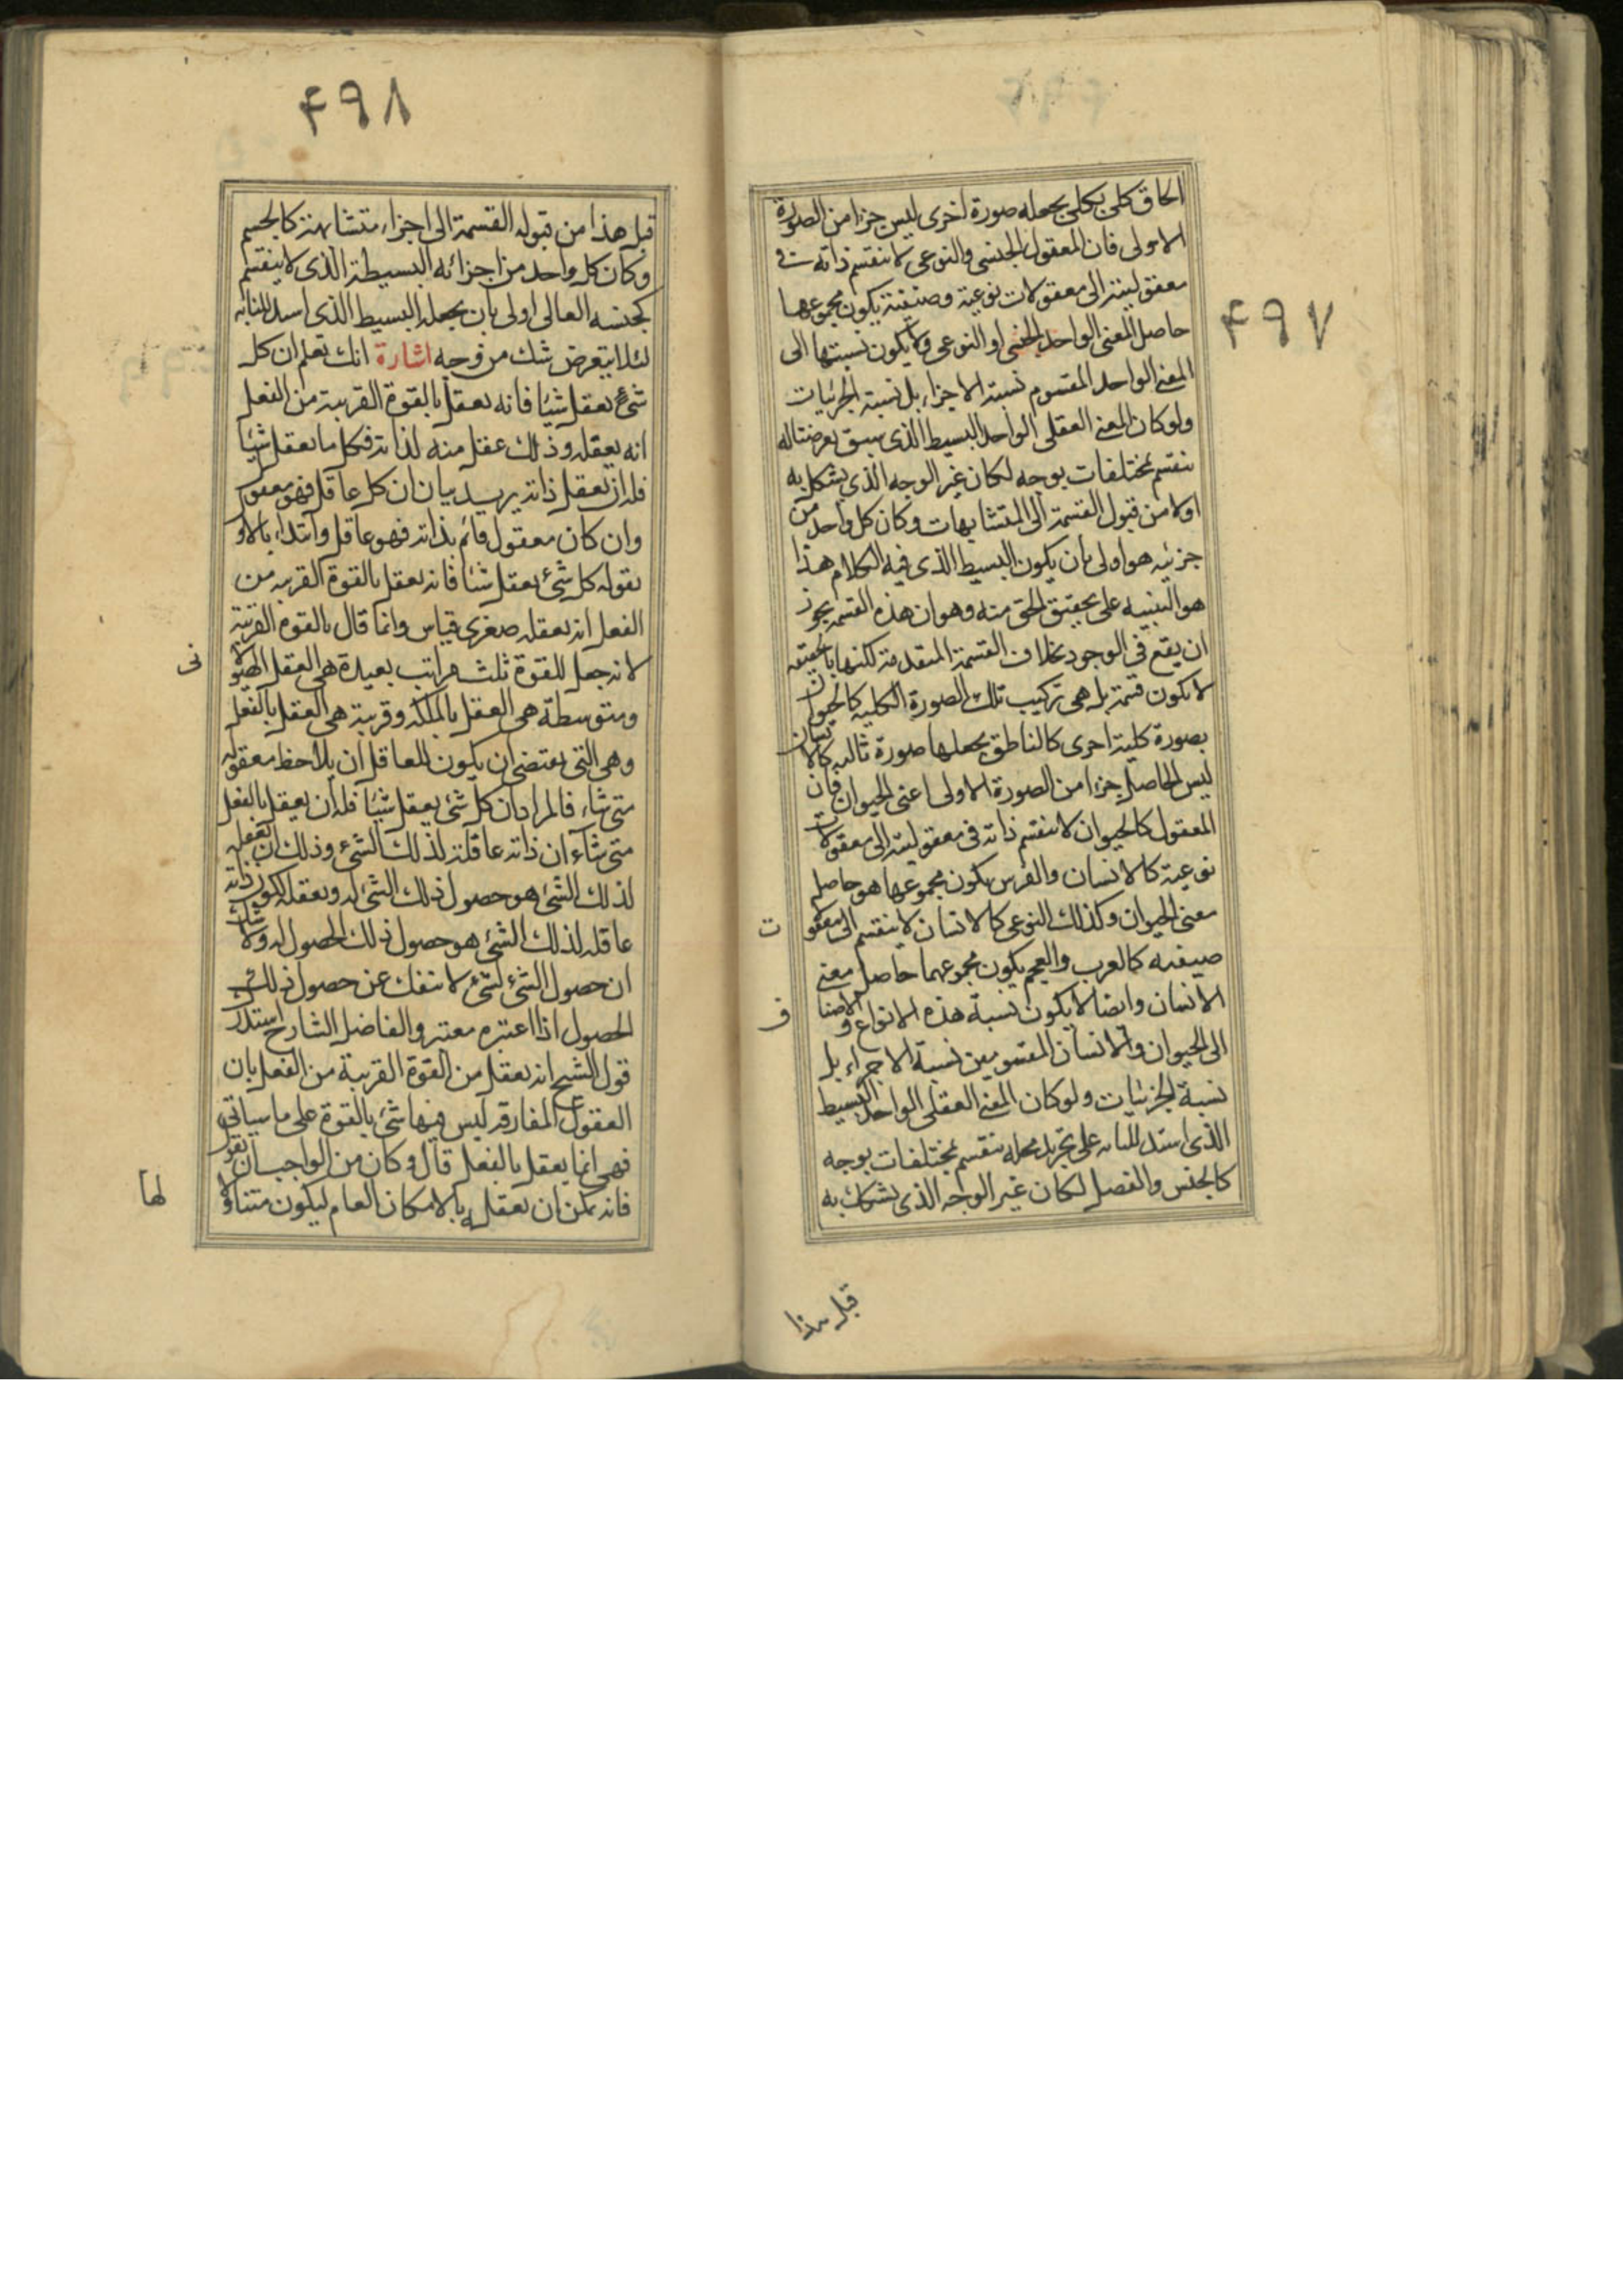 ۴۹۷
الحاق كلى بكلى يجعله صورة اخرى ليس جزا من الصورة
الاولى فان المعقول الجنسى والنوعى لا ينقسم ذاته فى
معقوليته الى معقولات نوعية وصنفية يكون مجموعها
حاصل المعنى الواحد الجنسى او النوعى ولا يكون نسبتها الى
المعنى الواحد المقسوم نسبة الاجزاء بل نسبة الجزئيات
ولو كان المعنى العقلى الواحد البسيط الذى سبق تعرضنا له
ينقسم بمختلفات بوجه لكان غير الوجه الذى يشكل به
اولا من قبول القسمة الى المتشابهات وكان كل واحد من
جزئيه هو اولى بان يكون البسيط الذى فيه الكلام هذا
هو التنبيه على تحقيق الحق منه وهو ان هذه القسمة يجوز
ان يقع فى الوجود بخلاف القسمة المتقدمة لكنها بالحقيقه
لا يكون قسمة بل هى تركيب تلك الصورة الكليه كالحيوان
بصورة كلية اخرى كالناطق يجعلها صورة ثالثه كالانسان
ليس الحاصل جزا من الصورة الاولى اعنى الحيوان فان
المعقول كالحيوان لا ينقسم ذاته فى معقوليته الى معقولات
نوعية كالانسان والفرس يكون مجموعها هو حاصل
معنى الحيوان وكذلك النوعى كالانسان لا ينقسم الى معقولات
صنفيه كالعرب والعجم يكون مجموعهما حاصل معنى
الانسان وايضا لا يكون نسبة هذه الانواع و الاصناف
الى الحيوان والانسان المقسومين نسبة الاجزاء بل
نسبة الجزئيات ولو كان المعنى العقلى الواحد البسيط
الذى استدللنا به على تجريد محله ينقسم بمختلفات بوجه
كالجنس والفصل لكان غير الوجه الذى يشكك به
قبل هذا
۴۹۸
قبل هذا من قبوله القسمة الى اجزاء متشابهة كالجسم
وكان كل واحد من اجزائه البسيطة الذى لا ينقسم
كجنسه العالى اولى بان يجعله البسيط الذى استدللنا به
لئلا يتعرض شك من وجه اشارة انك تعلم ان كل
شئ يعقل شيئا فانه يعقل بالقوة القريبة من الفعل
انه يعقله وذلك عقل منه لذاته فكل ما يعقل شيئا
فله ان يعقل ذاته يريد بيان ان كل عاقل فهو معقول
وان كان معقول قائم بذاته فهو عاقل وابتداء بالاول
بقوله كل شئ يعقل شيئا فانه يعقل بالقوة القريبه من
الفعل انه يعقله صغرى قياس وانما قال بالقوة القريبة
لانه جعل للقوة ثلث مراتب بعيدة هى العقل الهيولانى
ومتوسطة هى العقل بالملكة وقريبة هى العقل بالفعل
وهى التى يقتضى ان يكون للعاقل ان يلاحظ معقوله
متى شاء فالمراد ان كل شئ يعقل شيئا فله ان يعقل بالفعل
متى شاء ان ذاته عاقلة لذلك الشئ وذلك ان تعقله
لذلك الشئ هو حصول ذلك الشئ له وتعقله لكون ذاته
عاقله لذلك الشئ هو حصول ذلك الحصول له ولا شك
ان حصول الشئ لشئ لا ينفك عن حصول ذلك
الحصول اذا اعتبره معتبر والفاضل الشارح استدرك
قول الشيخ انه يعقل من القوة القريبة من الفعل بان
العقول المفارقة ليس فيها شئ بالقوة على ما سياتى
فهى انما يعقل بالفعل قال وكان من الواجب ان يقول
فانه يمكن ان يعقله بالامكان العام ليكون متناولا لها